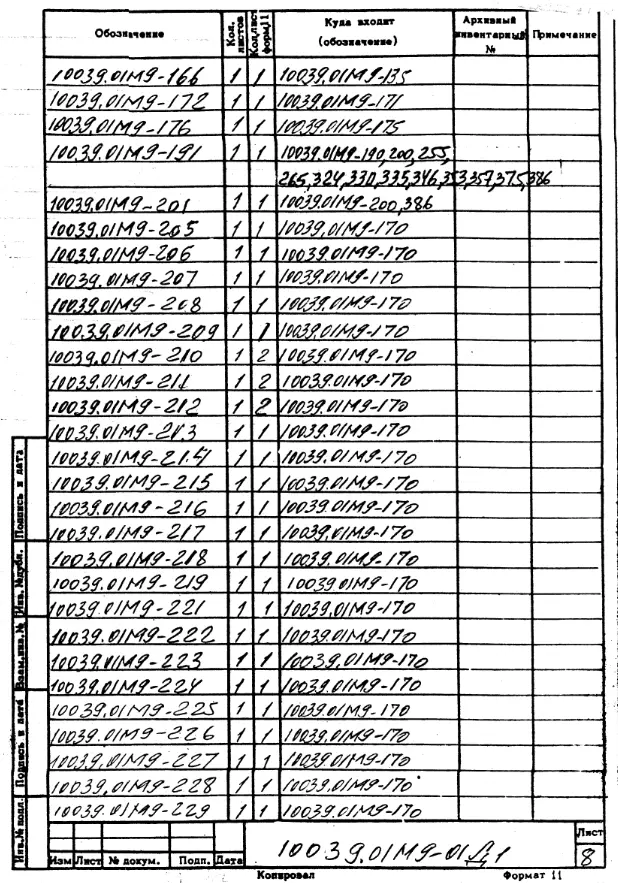 Обозначение Кол. листов Кол. лист. форм. 11 Куда входит (обозначение) Архивный инвентарный № Примечание
10039.01М9-166 1 1 10039.01М9-135
10039.01М9-172 1 1 10039.01М9-171
10039.01М9-176 1 1 10039.01М9-175
10039.01М9-191 1 1 10039.01М9-190,200,255,
265,324,330,335,346,353,357,375,386
10039.01М9-201 1 1 10039.01М9-200,386
10039.01М9-205 1 1 10039.01М9-170
10039.01М9-206 1 1 10039.01М9-170
10039.01М9-207 1 1 10039.01М9-170
10039.01М9-208 1 1 10039.01М9-170
10039.01М9-209 1 1 10039.01М9-170
10039.01М9-210 1 2 10039.01М9-170
10039.01М9-211 1 2 10039.01М9-170
10039.01М9-212 1 2 10039.01М9-170
10039.01М9-213 1 1 10039.01М9-170
10039.01М9-214 1 1 10039.01М9-170
10039.01М9-215 1 1 10039.01М9-170
10039.01М9-216 1 1 10039.01М9-170
10039.01М9-217 1 1 10039.01М9-170
10039.01М9-218 1 1 10039.01М9-170
10039.01М9-219 1 1 10039 01М9-170
10039.01М9-221 1 1 10039.01М9-170
10039.01М9-222 1 1 10039.01М9-170
10039.01М9-223 1 1 10039.01М9-170
10039.01М9-224 1 1 10039.01М9-170
10039.01М9-225 1 1 10039.01М9-170
10039.01М9-226 1 1 10039.01М9-170
10039.01М9-227 1 1 10039.01М9-170
10039.01М9-228 1 1 10039.01М9-170
10039.01М9-229 1 1 10039.01М9-170
Инв.№ подл. Подпись и дата Взам.инв.№ Инв.№дубл. Подпись и дата
Изм Лист № докум. Подп. Дата
10039.01М9-01Д1
Лист
8
Копировал Формат 11